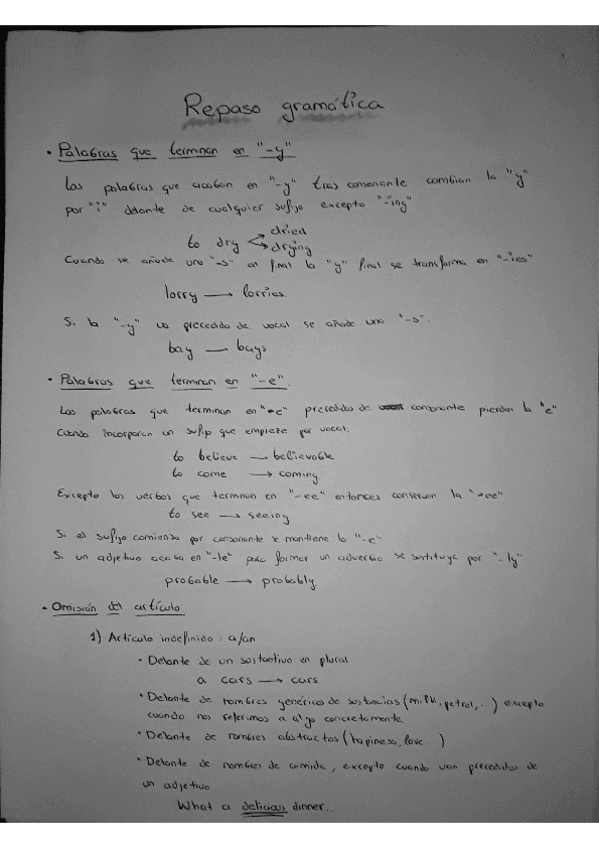 Repaso gramática
• Palabras que terminan en "-y"
Las palabras que acaban en "-y" tras consonante cambian la "y"
por "i" delante de cualquier sufijo excepto "-ing"
to dry dried
drying
Cuando se añade una "-s" al final la "y" final se transforma en "-ies"
lorry → lorries.
Si la "-y" va precedida de vocal se añade una "-s".
bay → bays
• Palabras que terminan en "-e".
Las palabras que terminan en "-e" precedidas de consonante pierden la "e"
cuando incorporan un sufijo que empieze por vocal.
to believe → believable
to come → coming
Excepto los verbos que terminan en "-ee" entonces conservan la "-ee"
to see → seeing
Si el sufijo comienza por consonante se mantiene la "-e"
Si un adjetivo acaba en "-le" para formar un adverbio se sustituye por "-ly"
probable → probably
• Omisión del artículo
1) Artículo indefinido: a/an
• Delante de un sustantivo en plural
a cars → cars
• Delante de nombres genéricos de sustancias (milk, petrol, ..) excepto
cuando nos referimos a algo concretamente
• Delante de nombres abstractos (hapiness, love...)
• Delante de nombres de comida, excepto cuando van precedidos de
un adjetivo
What a delicious dinner...